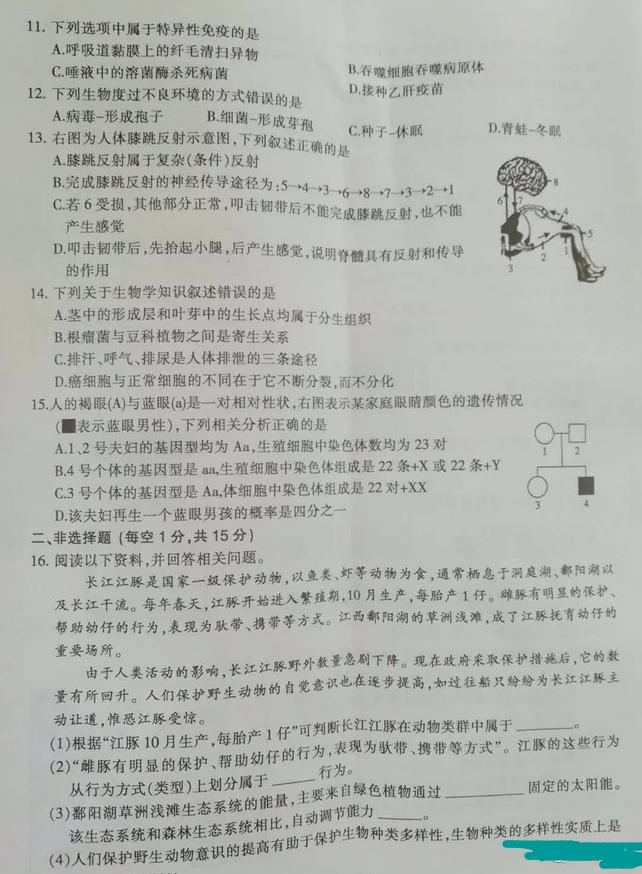 11. 下列选项中属于特异性免疫的是
A.呼吸道黏膜上的纤毛清扫异物
B.吞噬细胞吞噬病原体
C.唾液中的溶菌酶杀死病菌
D.接种乙肝疫苗
12. 下列生物度过不良环境的方式错误的是
A.病毒–形成孢子 B.细菌–形成芽孢 C.种子–休眠 D.青蛙–冬眠
13. 右图为人体膝跳反射示意图,下列叙述正确的是
A.膝跳反射属于复杂(条件)反射
B.完成膝跳反射的神经传导途径为:5→4→3→6→8→7→3→2→1
C.若6受损,其他部分正常,叩击韧带后不能完成膝跳反射,也不能
产生感觉
D.叩击韧带后,先抬起小腿,后产生感觉,说明脊髓具有反射和传导
的作用
8
6
7
4
5
3
2
1
14. 下列关于生物学知识叙述错误的是
A.茎中的形成层和叶芽中的生长点均属于分生组织
B.根瘤菌与豆科植物之间是寄生关系
C.排汗、呼气、排尿是人体排泄的三条途径
D.癌细胞与正常细胞的不同在于它不断分裂,而不分化
15.人的褐眼(A)与蓝眼(a)是一对相对性状,右图表示某家庭眼睛颜色的遗传情况
(■表示蓝眼男性),下列相关分析正确的是
A.1、2号夫妇的基因型均为Aa,生殖细胞中染色体数均为23对
B.4号个体的基因型是aa,生殖细胞中染色体组成是22条+X或22条+Y
C.3号个体的基因型是Aa,体细胞中染色体组成是22对+XX
D.该夫妇再生一个蓝眼男孩的概率是四分之一
1 2
3 4
二、非选择题(每空1分,共15分)
16. 阅读以下资料,并回答相关问题。
长江江豚是国家一级保护动物,以鱼类、虾等动物为食,通常栖息于洞庭湖、鄱阳湖以
及长江干流。每年春天,江豚开始进入繁殖期,10月生产,每胎产1仔。雌豚有明显的保护、
帮助幼仔的行为,表现为驮带、携带等方式。江西鄱阳湖的草洲浅滩,成了江豚抚育幼仔的
重要场所。
由于人类活动的影响,长江江豚野外数量急剧下降。现在政府采取保护措施后,它的数
量有所回升。人们保护野生动物的自觉意识也在逐步提高,如过往船只纷纷为长江江豚主
动让道,惟恐江豚受惊。
(1)根据“江豚10月生产,每胎产1仔”可判断长江江豚在动物类群中属于________。
(2)“雌豚有明显的保护、帮助幼仔的行为,表现为驮带、携带等方式”。江豚的这些行为
从行为方式(类型)上划分属于______行为。
(3)鄱阳湖草洲浅滩生态系统的能量,主要来自绿色植物通过__________固定的太阳能。
该生态系统和森林生态系统相比,自动调节能力______。
(4)人们保护野生动物意识的提高有助于保护生物种类多样性,生物种类的多样性实质上是